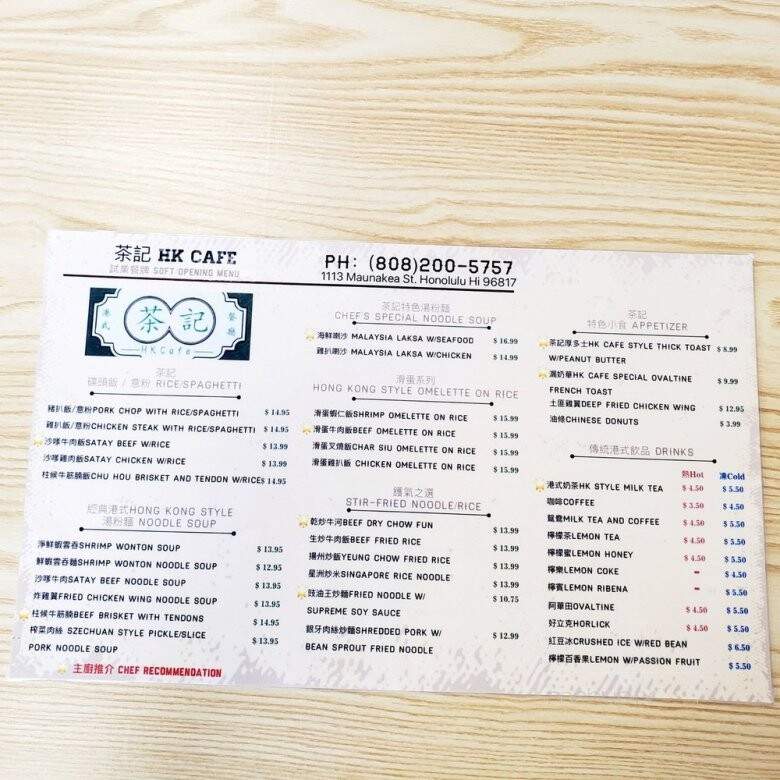 茶記 HK CAFE
試業餐牌 SOFT OPENING MENU
PH: (808)200-5757
1113 Maunakea St. Honolulu Hi 96817
港式 茶記 餐廳
HKCafe
茶記
碟頭飯 / 意粉 RICE/SPAGHETTI
豬扒飯/意粉PORK CHOP WITH RICE/SPAGHETTI $ 14.95
雞扒飯/意粉CHICKEN STEAK WITH RICE/SPAGHETTI $ 14.95
沙嗲牛肉飯SATAY BEEF W/RICE $ 13.99
沙嗲雞肉飯SATAY CHICKEN W/RICE $ 13.99
柱候牛筋腩飯CHU HOU BRISKET AND TENDON W/RICE $ 14.95
經典港式HONG KONG STYLE
湯粉麵 NOODLE SOUP
淨鮮蝦雲吞SHRIMP WONTON SOUP $ 13.95
鮮蝦雲吞麵SHRIMP WONTON NOODLE SOUP $ 12.95
沙嗲牛肉SATAY BEEF NOODLE SOUP $ 13.95
炸雞翼FRIED CHICKEN WING NOODLE SOUP $ 13.95
柱候牛筋腩BEEF BRISKET WITH TENDONS $ 14.95
榨菜肉絲 SZECHUAN STYLE PICKLE/SLICE $ 13.95
PORK NOODLE SOUP
主廚推介 CHEF RECOMMENDATION
茶記特色湯粉麵
CHEF'S SPECIAL NOODLE SOUP
海鮮喇沙 MALAYSIA LAKSA W/SEAFOOD $ 16.99
雞扒喇沙 MALAYSIA LAKSA W/CHICKEN $ 14.99
滑蛋系列
HONG KONG STYLE OMELETTE ON RICE
滑蛋蝦仁飯SHRIMP OMELETTE ON RICE $ 15.99
滑蛋牛肉飯BEEF OMELETTE ON RICE $ 15.99
滑蛋叉燒飯CHAR SIU OMELETTE ON RICE $ 15.99
滑蛋雞扒飯 CHICKEN OMELETTE ON RICE $ 15.99
鑊氣之選
STIR-FRIED NOODLE/RICE
乾炒牛河BEEF DRY CHOW FUN $ 13.99
生炒牛肉飯BEEF FRIED RICE $ 13.99
揚州炒飯YEUNG CHOW FRIED RICE $ 13.99
星洲炒米SINGAPORE RICE NOODLE $ 13.99
豉油王炒麵FRIED NOODLE W/ $ 10.75
SUPREME SOY SAUCE
銀牙肉絲炒麵SHREDDED PORK W/ $ 12.99
BEAN SPROUT FRIED NOODLE
茶記
特色小食 APPETIZER
茶記厚多士HK CAFE STYLE THICK TOAST $ 8.99
W/PEANUT BUTTER
濃奶華HK CAFE SPECIAL OVALTINE $ 9.99
FRENCH TOAST
土匪雞翼DEEP FRIED CHICKEN WING $ 12.95
油條CHINESE DONUTS $ 3.99
傳統港式飲品 DRINKS
熱Hot 凍Cold
港式奶茶HK STYLE MILK TEA $ 4.50 $ 5.50
咖啡COFFEE $ 3.50 $ 4.50
鴛鴦MILK TEA AND COFFEE $ 4.50 $ 5.50
檸檬茶LEMON TEA $ 4.50 $ 5.50
檸檬蜜LEMON HONEY $ 4.50 $ 5.50
檸樂LEMON COKE - $ 4.50
檸賓LEMON RIBENA - $ 5.50
阿華田OVALTINE $ 4.50 $ 5.50
好立克HORLICK $ 4.50 $ 5.50
紅豆冰CRUSHED ICE W/RED BEAN $ 6.50
檸檬百香果LEMON W/PASSION FRUIT $ 5.50